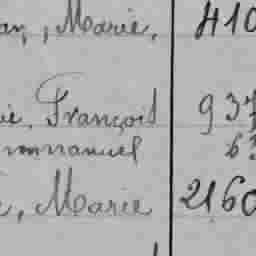 an, Marie, 410
ie, François 937
mmanuel 63
e, Marie 2160